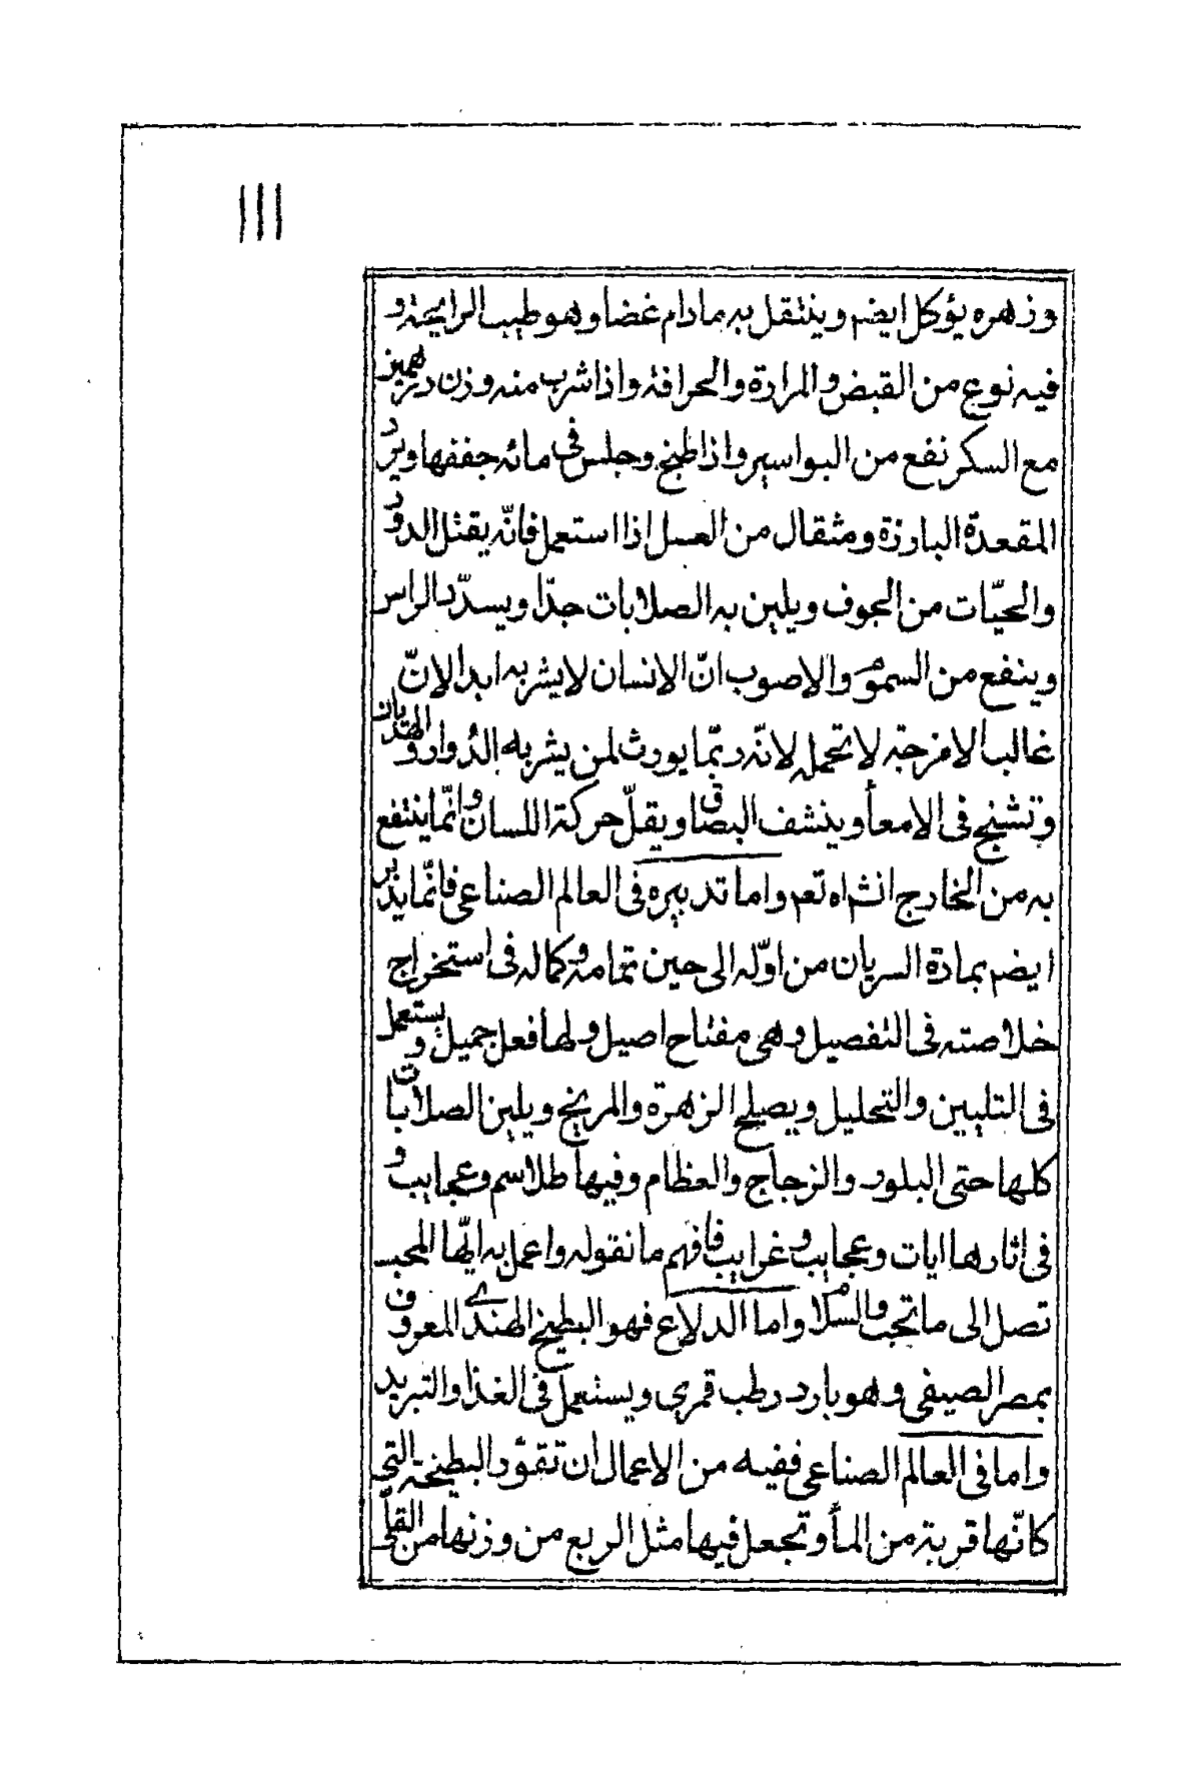 ١١١
وزهره يؤكل ايضم وينتقل به مادام غضا وهو طيب الرايحة و
فيه نوع من القبض والمرارة والحرافة واذا شرب منه وزن درهمين
مع السكر نفع من البواسير واذا طبخ وجلس فى مائه جففها ويرد
المقعدة البارزة ومثقال من العسل اذا استعمل فانّه يقتل الدود
والحيّات من الجوف ويلين به الصلابات جدّا ويسدّد الراس
وينفع من السموم والاصوب انّ الانسان لا يشربه ابدا لانّ
غالب الامزجة لا تحمله لانّه ربّما يورث لمن يشربه الدُوار والهذيان
وتشنج فى الامعأ وينشف البصاق ويقلّ حركة اللسان وانّما ينتفع
به من الخارج انشاه تعم واما تدبيره فى العالم الصناعى فانّما يدبر
ايضم بمادة السريان من اوّله الى حين تمامه وكماله فى استخراج
خلاصته فى التفصيل وهى مفتاح اصيل ولها فعل جميل ويستعمل
فى التليين والتحليل ويصلح الزهرة والمريخ ويلين الصلابات
كلها حتى البلور والزجاج والعظام وفيها طلاسم وعجايب و
فى اثارها ايات وعجايب وغرايب فافهم ما نقوله واعمل به ايّها المحب
تصل الى ما تحب والسلام واما الدلاع فهو البطيخ الهندى المعروف
بمصر الصيفى وهو بارد رطب قمرى ويستعمل فى الغذا والتبريد
واما فى العالم الصناعى ففيه من الاعمال ان تقوّر البطيخة التى
كانّها قربة من المأ وتجعل فيها مثل الربع من وزنها من القلى